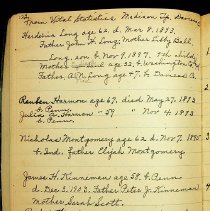 From Vital Statistics Madison Tp. Daviess
Hardenia Long age 62. d. Mar 8, 1893.
Father John H. Long; Mother Libby Ball
Long, son b. Nov. 9, 1897. 7th child;
Mother age 32, b. Washington Tp
Father, A. N. Long age 47. b. Daviess Co.
Reuben Harmon age 67, died May 27, 1893
b. Penn.
Julia A. Harmon - 59 " Nov 4, 1893
b. Penn
Nicholas Montgomery age 62 d. Nov 7, 1895
b. Ind. Father Elijah Montgomery
James H. Kinneman age 58, b. Penn
d. Dec 5, 1903 Father Peter J. Kinneman
Mother Sarah Scott